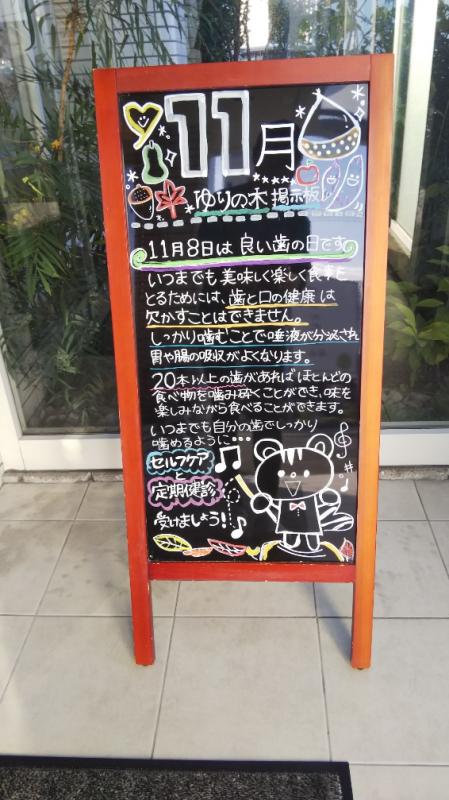 11月
ゆりの木 掲示板
11月8日は 良い歯の日です
いつまでも 美味しく楽しく 食事を
とるためには、歯と口の健康 は
欠かすことはできません。
しっかり噛むことで唾液が分泌され
胃や腸の吸収がよくなります。
20本以上の歯があれば ほとんどの
食べ物を噛み砕くことができ、味を
楽しみながら食べることができます。
いつまでも自分の歯でしっかり
噛めるように・・・
セルフケア
と
定期健診
受けましょう!